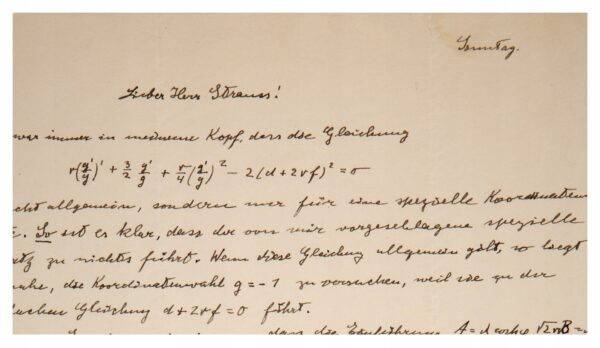 Sonntag.
Lieber Herr Strauss!
war immer in meinem Kopf, dass die Gleichung
r(g'/g)' + 3/2 g'/g + r/4 (g'/g)² - 2(d+2rf)² = 0
cht allgemein, sondern nur für eine spezielle Koordinaten
t. So ist es klar, dass der von mir vorgeschlagene spezielle
atz zu nichts führt. Wenn diese Gleichung allgemein gilt, so liegt
nahe, die Koordinatenwahl g = -1 zu versuchen, weil sie zu der
fachen Gleichung d+2rf=0 führt.
dass die Einführung A = d √2r B =